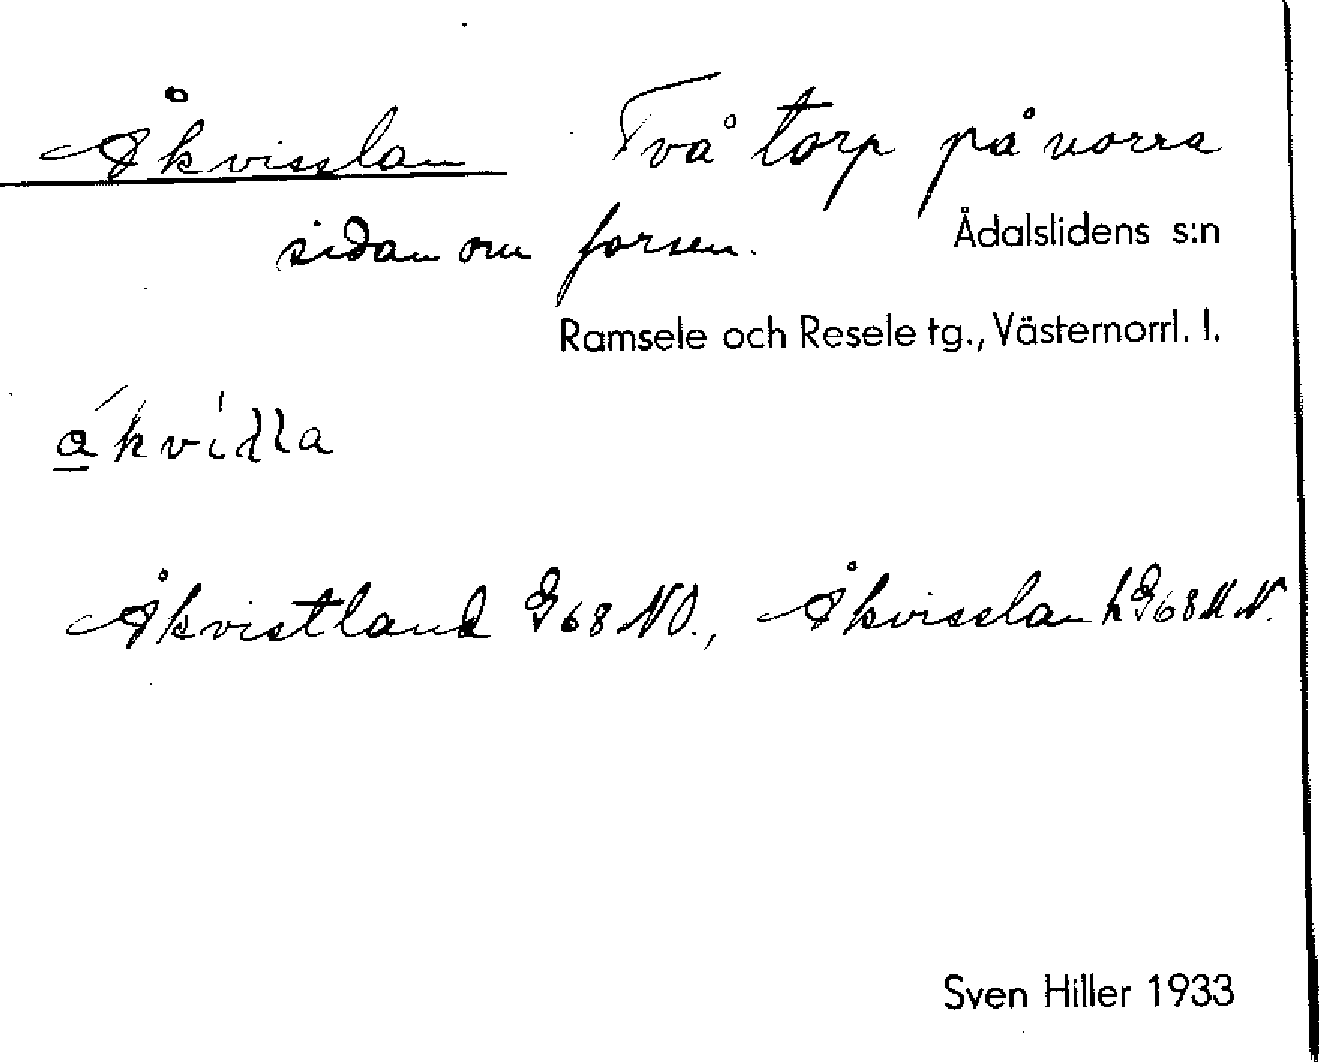 Åkvisslan Två torp på norra
sidan om forsen. Ådalslidens s:n
Ramsele och Resele tg., Västernorrl. l.
Åkvistland G68 NO., Åkvisslan hG68
Sven Hiller 1933